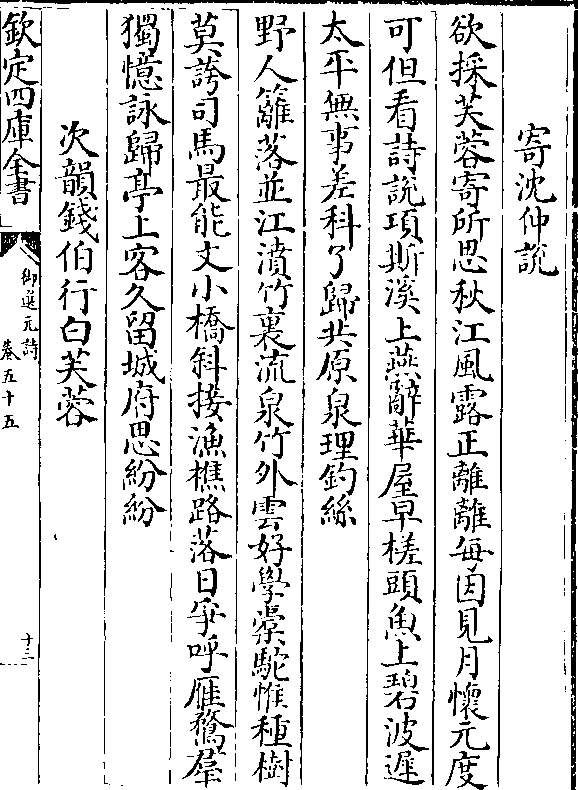 寄沈仲説
欲採芙蓉寄所思秋江風露正離離每因見月懷元度
可但看詩説項斯溪上燕辭華屋早槎頭魚上碧波遲
太平無事差科了歸共原泉理釣絲
野人籬落並江濆竹裏流泉竹外雲好學橐駝惟種樹
莫誇司馬最能文小橋斜接漁樵路落日爭呼雁鶩羣
獨憶詠歸亭上客久留城府思紛紛
次韻錢伯行白芙蓉
欽定四庫全書
御選元詩
卷五十五
十三